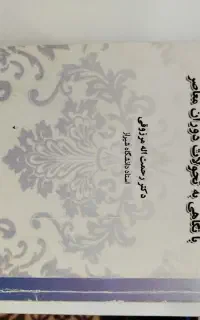 با نگاهی به تحولات دوران معاصر
دکتر رحمت اله مرزوقی
استاد دانشگاه شیراز